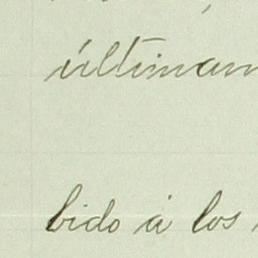 últimam
bido á los